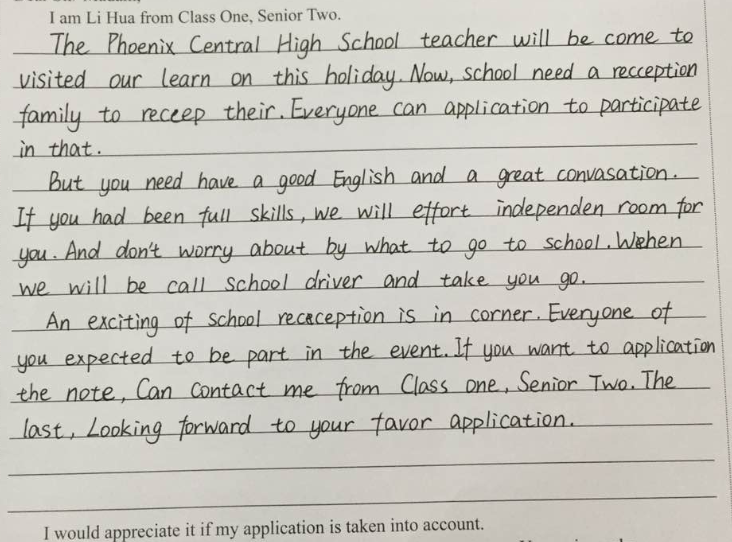 I am Li Hua from Class One, Senior Two.
The Phoenix Central High School teacher will be come to
visited our learn on this holiday. Now, school need a recception
family to receep their. Everyone can application to participate
in that.
But you need have a good English and a great convasation.
If you had been full skills, we will effort independen room for
you. And don't worry about by what to go to school. Wehen
we will be call school driver and take you go.
An exciting of school rececception is in corner. Everyone of
you expected to be part in the event. If you want to application
the note, Can Contact me from Class one, Senior Two. The
last, Looking forward to your favor application.
I would appreciate it if my application is taken into account.